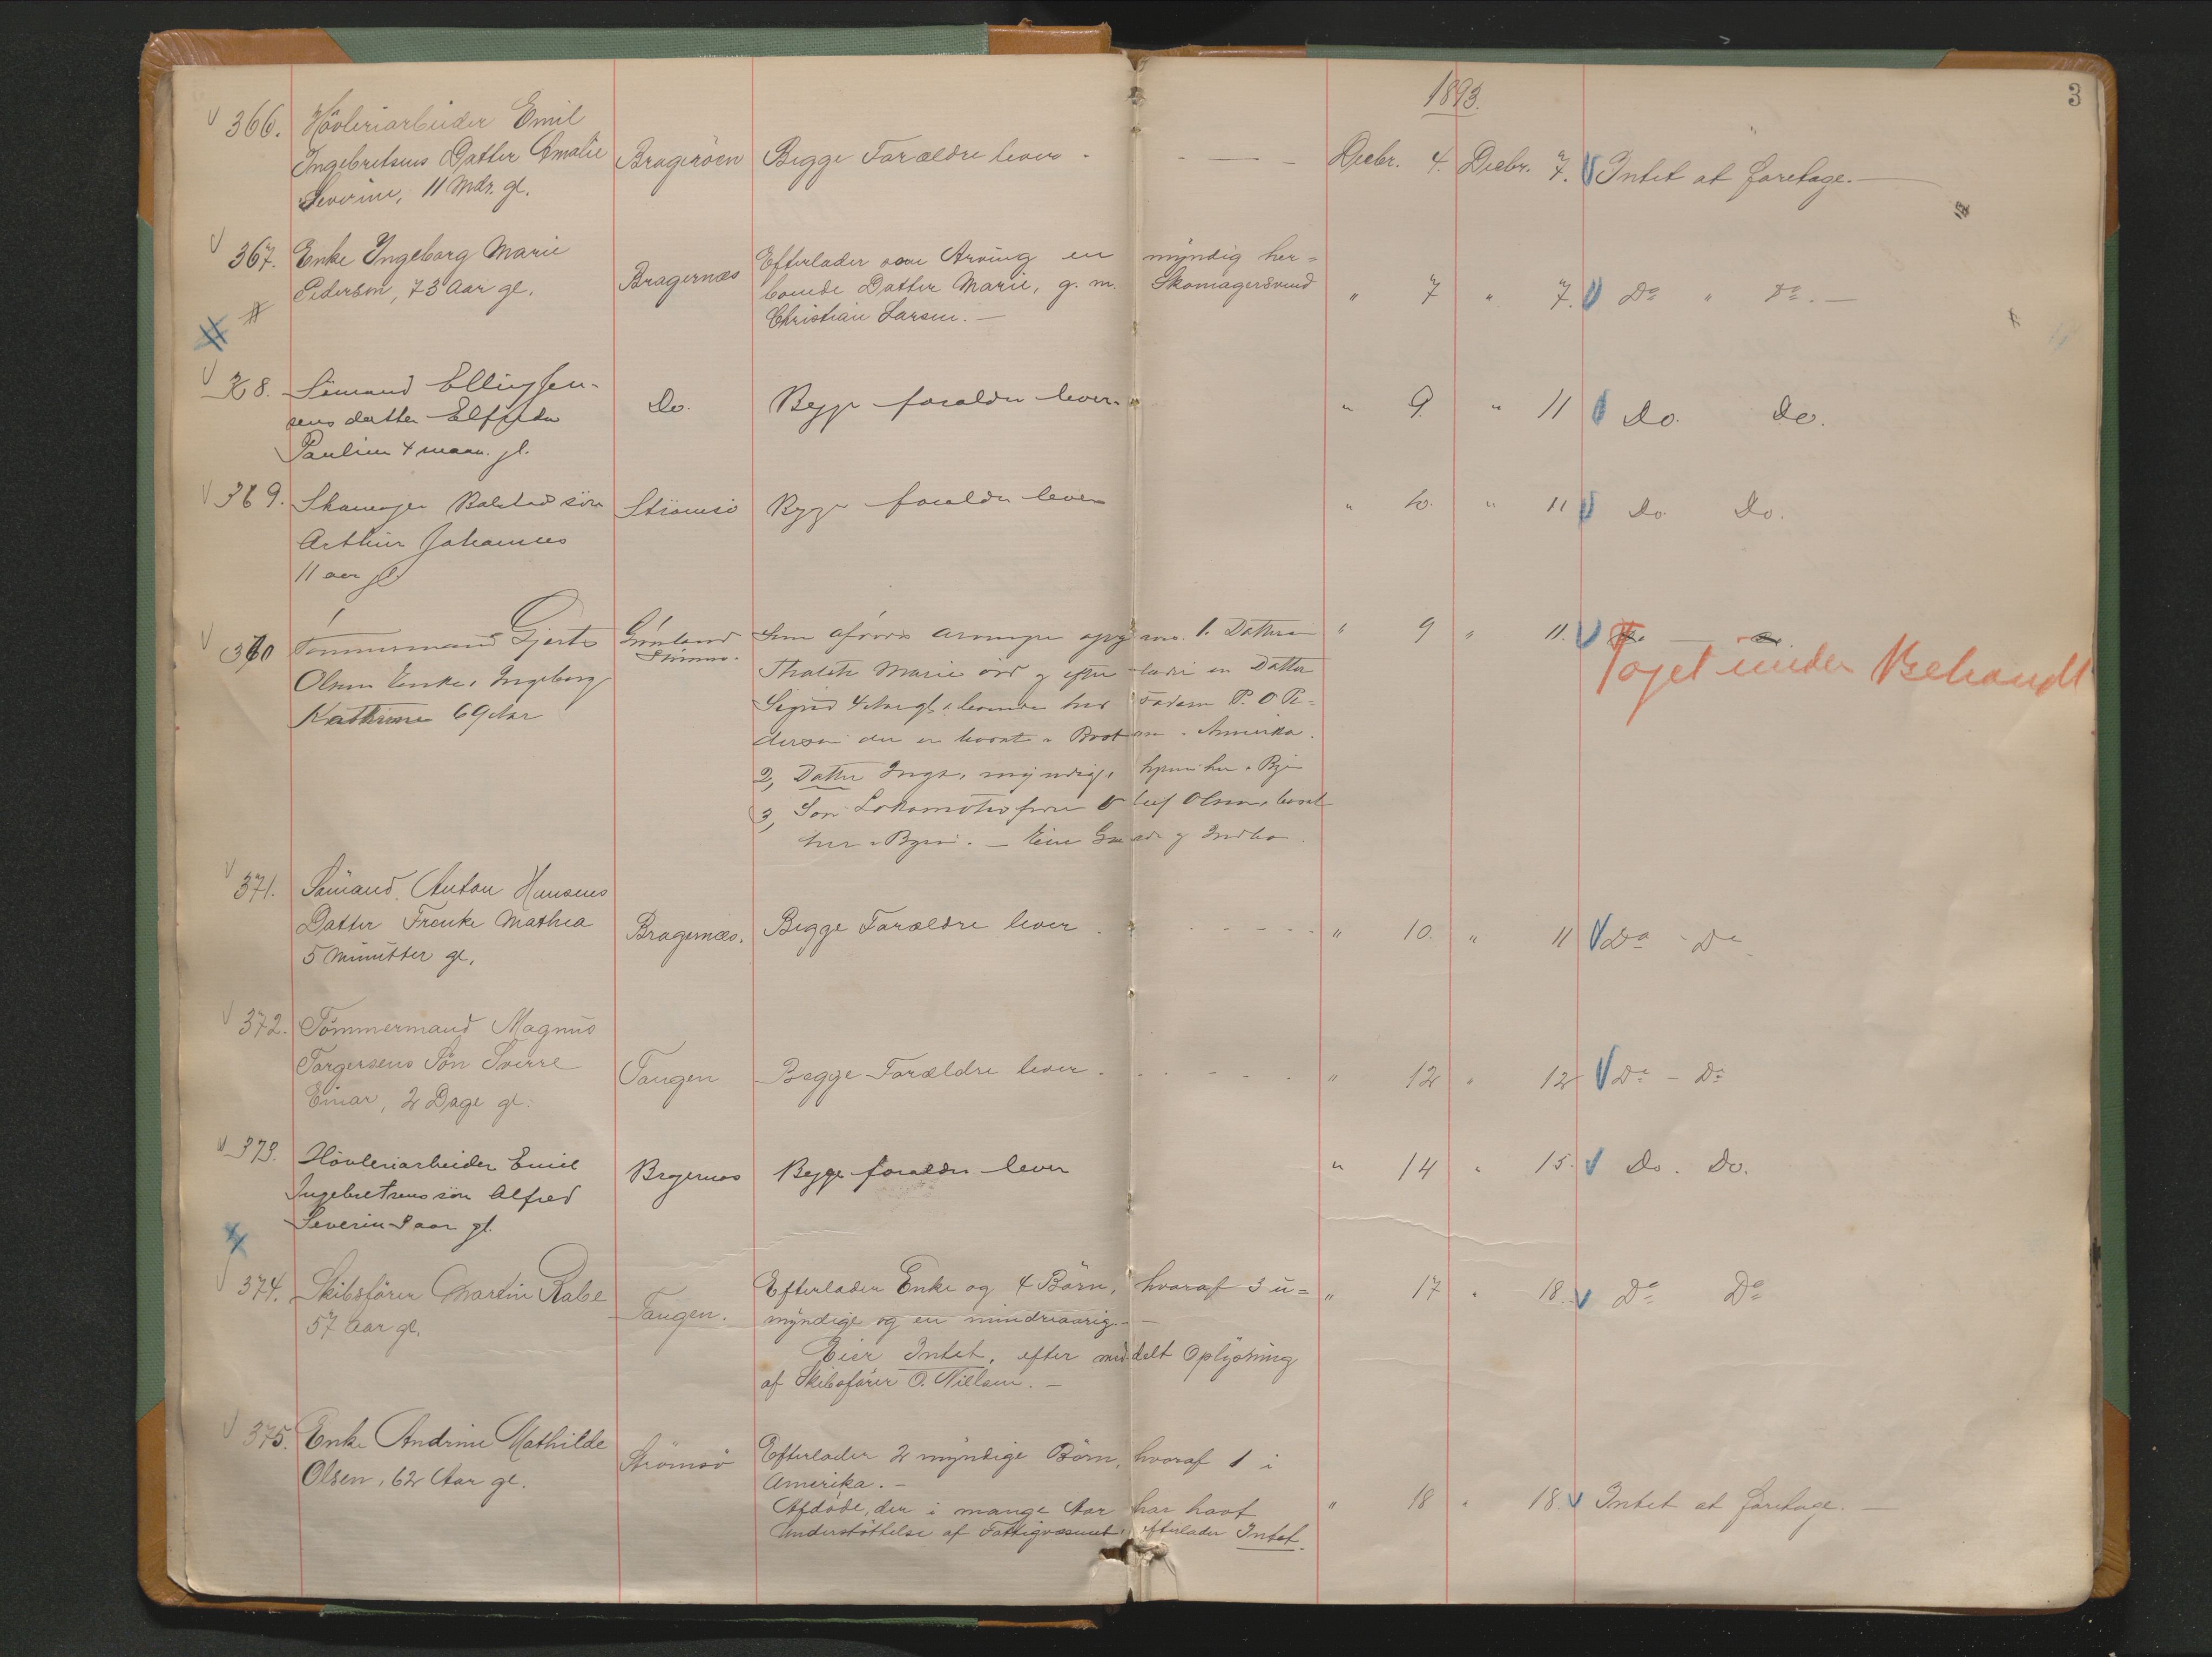 3
1893.
366. Høvleriarbeider Emil
Ingebretsens Datter Amalie
Severine, 11 Mdr. gl.
Bragerøen
Begge Forældre lever.
Decbr. 4. Decbr. 7. Intet at foretage.
367. Enke Ingeborg Marie
Pedersen, 73 Aar gl.
Bragernæs
Efterlader som Arving en myndig her=
boende Datter Marie, g. m. Skomagersvend
Christian Larsen.
" 7 " 7. Do " Do.
368. Sömand Ellingsen-
sens datter Elfrida
Pauline 4 maan. gl.
Do.
Begge foraldre lever.
" 9. " 11 Do. Do.
369. Skomager sön
Arthur Johannes
11 aar gl.
Strömsö
Begge foraldre lever
" 10. " 11 Do. Do.
370 Tømmermand Gjerts
Olsens Enke, Ingeborg
Kathrine 69 Aar
Grønland
Strømsø.
Som Afdødes Arvinger opgives. 1. Datteren
Marie død og efterlader en Datter
Sigrid 4 Aar gl. boende hos Faderen P. O. Pe=
dersen der er bosat i Amerika.
2, Datter Inga, myndig, hjemme her i Byen
3, Søn Lokomotivfører Oluf Olsen, bosat
her i Byen. — Eier Gaard og Indbo.
" 9 " 11.
Taget under Behandl
371. Sømand Anton Hansens
Datter Frenke Mathea
5 Minutter gl.
Bragernæs.
Begge Forældre lever.
" 10. " 11 Do - Do
372. Tømmermand Magnus
Torgersens Søn Sverre
Einar, 2 Dage gl.
Tangen
Begge Forældre lever.
" 12 " 12 Do - Do
373. Hövleriarbeider Emil
Ingebretsens sön Alfred
Severin aar gl.
Bragernæs
Begge foraldre lever
" 14 " 15. Do. Do.
374. Skibsfører Martin Rabe
57 Aar gl.
Tangen.
Efterlader Enke og 4 Børn, hvoraf 3 u=
myndige og en mindreaarig.
Eier Intet, efter meddelt Oplysning
af Skibsfører O. Nielsen.
" 17 " 18. Do Do
375. Enke Andrine Mathilde
Olsen, 62 Aar gl.
Strømsø
Efterlader 2 myndige Børn, hvoraf 1 i
Amerika.
Afdøde, der i mange Aar har havt
Understøttelse af Fattigvæsenet, efterlader Intet.
" 18 " 18. Intet at foretage.